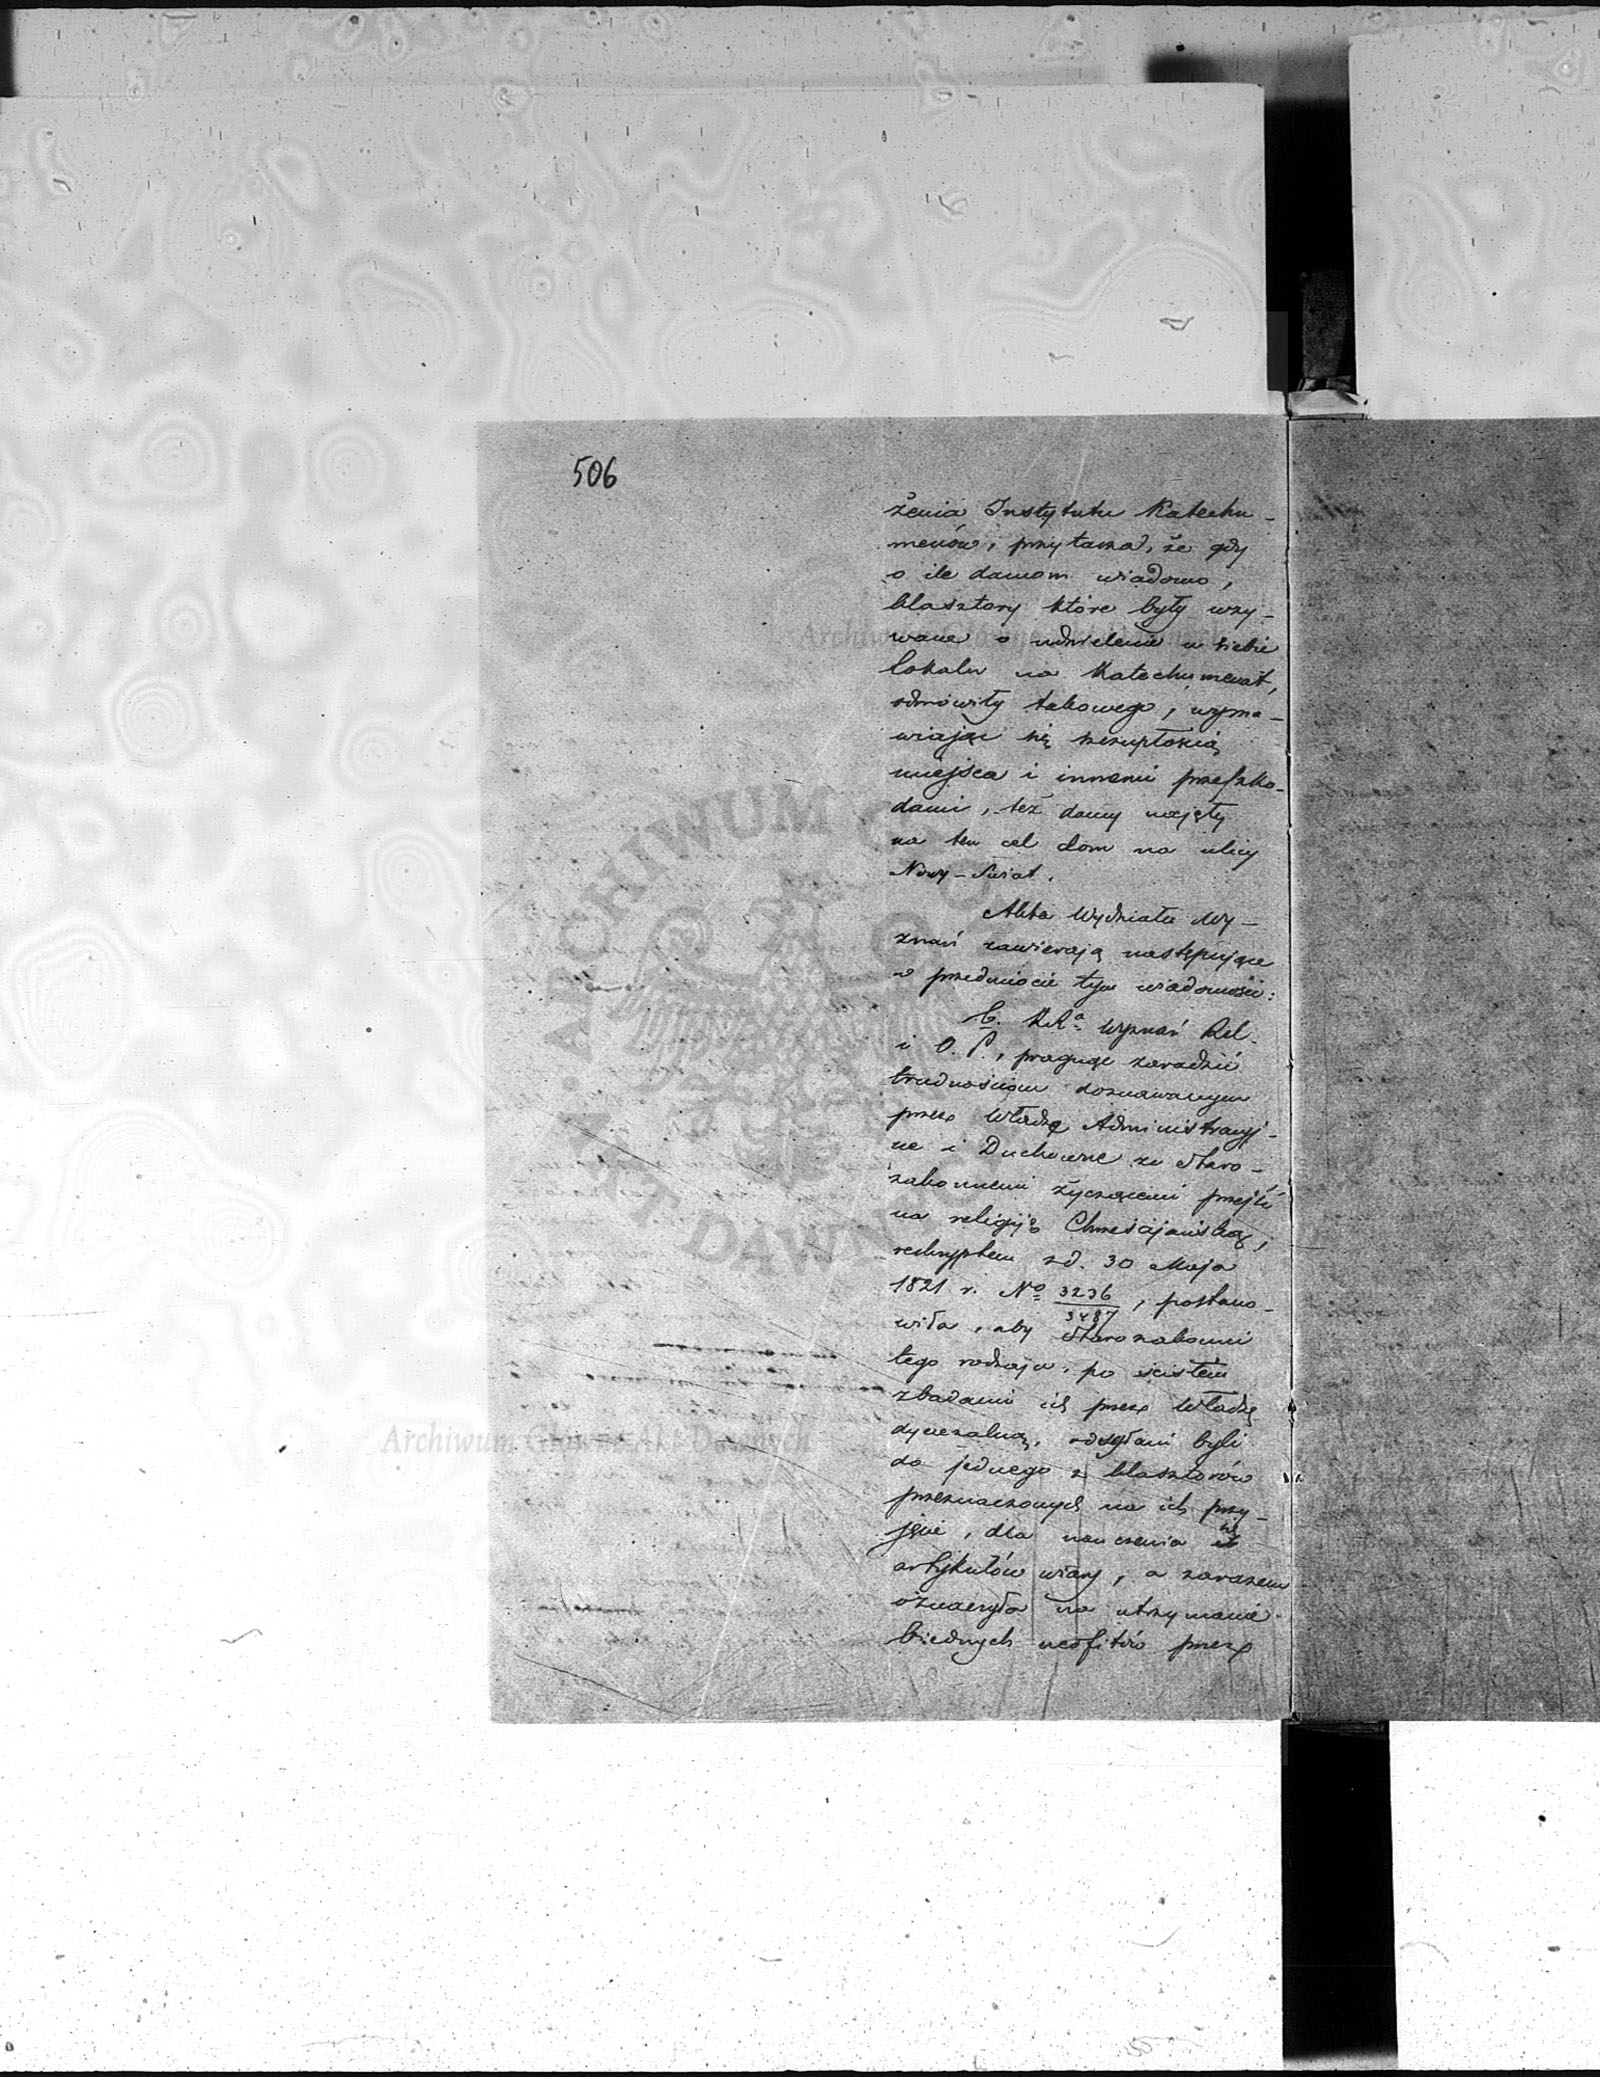 506
żenia Instytutu Katechu-
menów, przytacza, że gdy
o ile damom wiadomo,
klasztory które były wzy-
wane o udzielenie u siebie
lokalu na Katechumenat,
odmówiły takowego, wyma-
wiając się szczupłością
miejsca i innemi przeszko-
dami, też damy najęły
na ten cel dom na ulicy
Nowy-Świat.
Akta Wydziału Wy-
znań zawierają następujące
w przedmiocie tym wiadomości:
b. KRa Wyznań Rel.
i O. P., pragnąc zaradzić
trudnościom doznawanym
przez Władzę Administracyj-
ne i Duchowne ze Staro-
zakonnemi życzącemi przejść
na religiję Chrześcijańską,
reskryptem z d. 30 Maja
1821 r. No 3236/3487, postano-
wiła, aby Starozakonni
tego rodzaju, po ścisłém
zbadaniu ich przez Władzę
dyecezalną, odsyłani byli
do jednego z klasztorów
przeznaczonych na ich przy-
jęcie, dla nauczenia się
artykułów wiary, a zarazem
oznaczyła na utrzymanie
biednych neofitów przez
Archiwum Główne Akt Dawnych